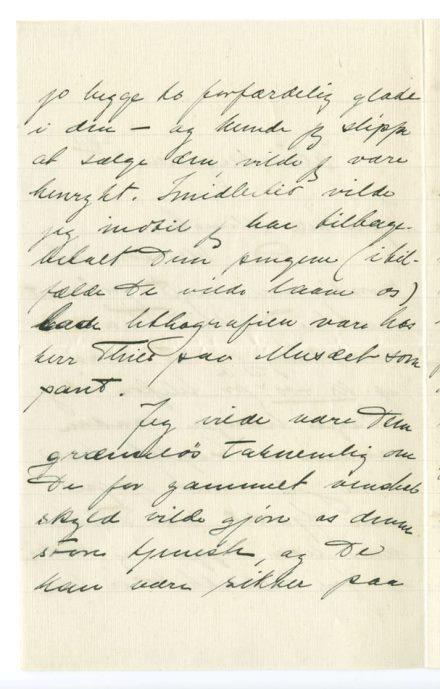 jo begge to forfærdelig glade
i den – og kunde jeg slippe
at sælge den, vilde jeg være
henrykt. Imidlertid vilde
jeg indtil jeg har tilbage-
betalt Dem pengene (i til-
fælde De vilde laane os)
lade lithografien være hos
herr Thiis paa Musæet som
pant.
Jeg vilde være Dem
grænseløs taknemlig om
De for gammelt venskabs
skyld vilde gjøre os denne
store tjeneste, og De
kan være sikker paa